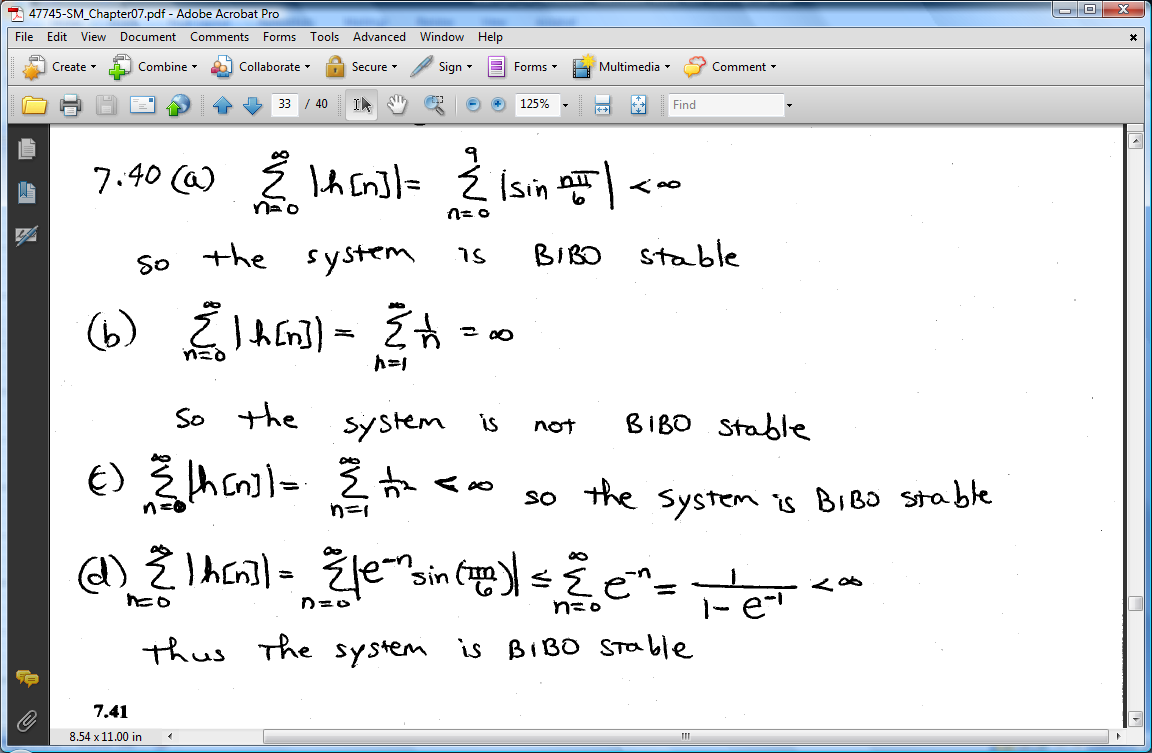 47745-SM_Chapter07.pdf - Adobe Acrobat Pro
File Edit View Document Comments Forms Tools Advanced Window Help
Create Combine Collaborate Secure Sign Forms Multimedia Comment
33 / 40 125% Find
7.40 (a) ∞ Σ n=0 |h[n]| = 9 Σ n=0 |sin nπ/6| < ∞
so the system is BIBO stable
(b) ∞ Σ n=0 |h[n]| = ∞ Σ n=1 1/n = ∞
So the system is not BIBO stable
(c) ∞ Σ n=0 |h[n]| = ∞ Σ n=1 1/n² < ∞ so the system is BIBO stable
(d) ∞ Σ n=0 |h[n]| = ∞ Σ n=0 |e⁻ⁿ sin(πn/6)| ≤ ∞ Σ n=0 e⁻ⁿ = 1/(1 - e⁻¹) < ∞
thus the system is BIBO stable
7.41
8.54 x 11.00 in